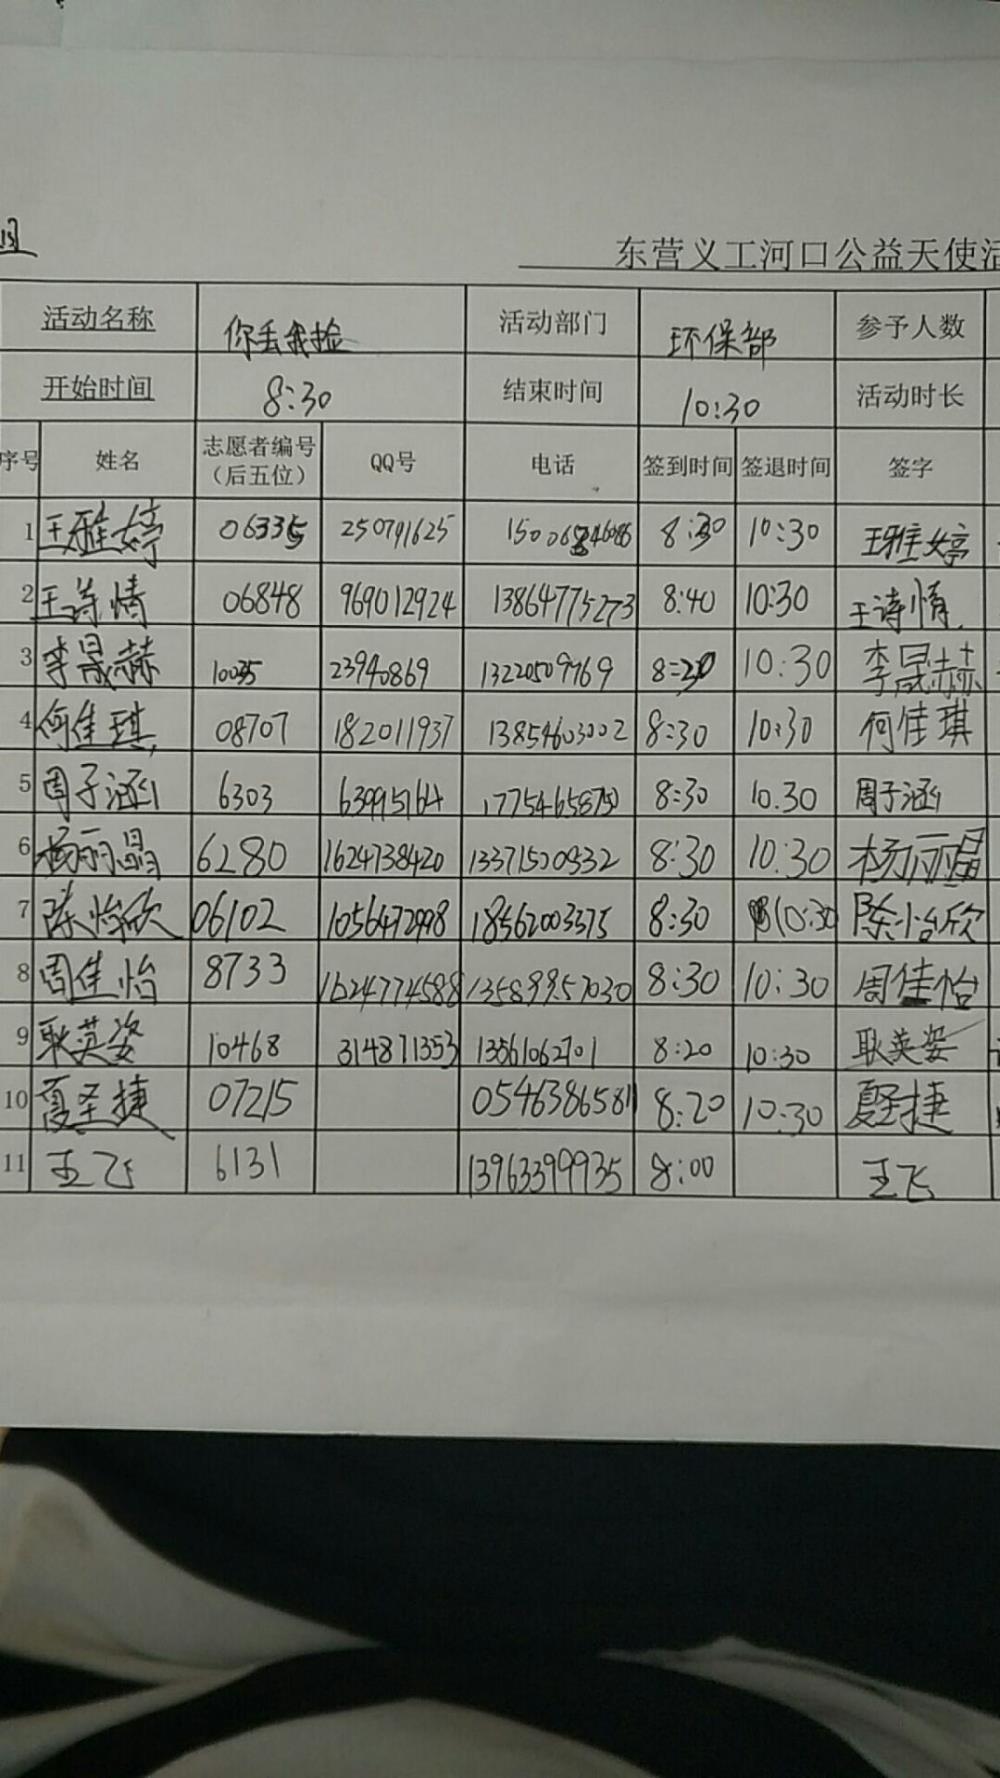 组
东营义工河口公益天使活
活动名称 你丢我捡 活动部门 环保部 参予人数
开始时间 8:30 结束时间 10:30 活动时长
序号 姓名 志愿者编号（后五位） QQ号 电话 签到时间 签退时间 签字
1 王雅婷 06335 250791625 8:30 10:30 王雅婷
2 王诗情 06848 969012924 13864775273 8:40 10:30 王诗情
3 李晟赫 10035 23940869 13220509769 8:20 10:30 李晟赫
4 何佳琪 08707 182011937 13854603002 8:30 10:30 何佳琪
5 周子涵 6303 63995164 17754658750 8:30 10.30 周子涵
6 杨丽晶 6280 1624738420 13371520332 8:30 10:30 杨丽晶
7 陈怡欣 06102 1056472998 18562003375 8:30 10:30 陈怡欣
8 周佳怡 8733 1624774588 13589957030 8:30 10:30 周佳怡
9 耿英姿 10468 314871353 13561062701 8:20 10:30 耿英姿
10 夏圣捷 07215 05463865811 8:20 10:30 夏圣捷
11 王飞 6131 13963399935 8:00 王飞